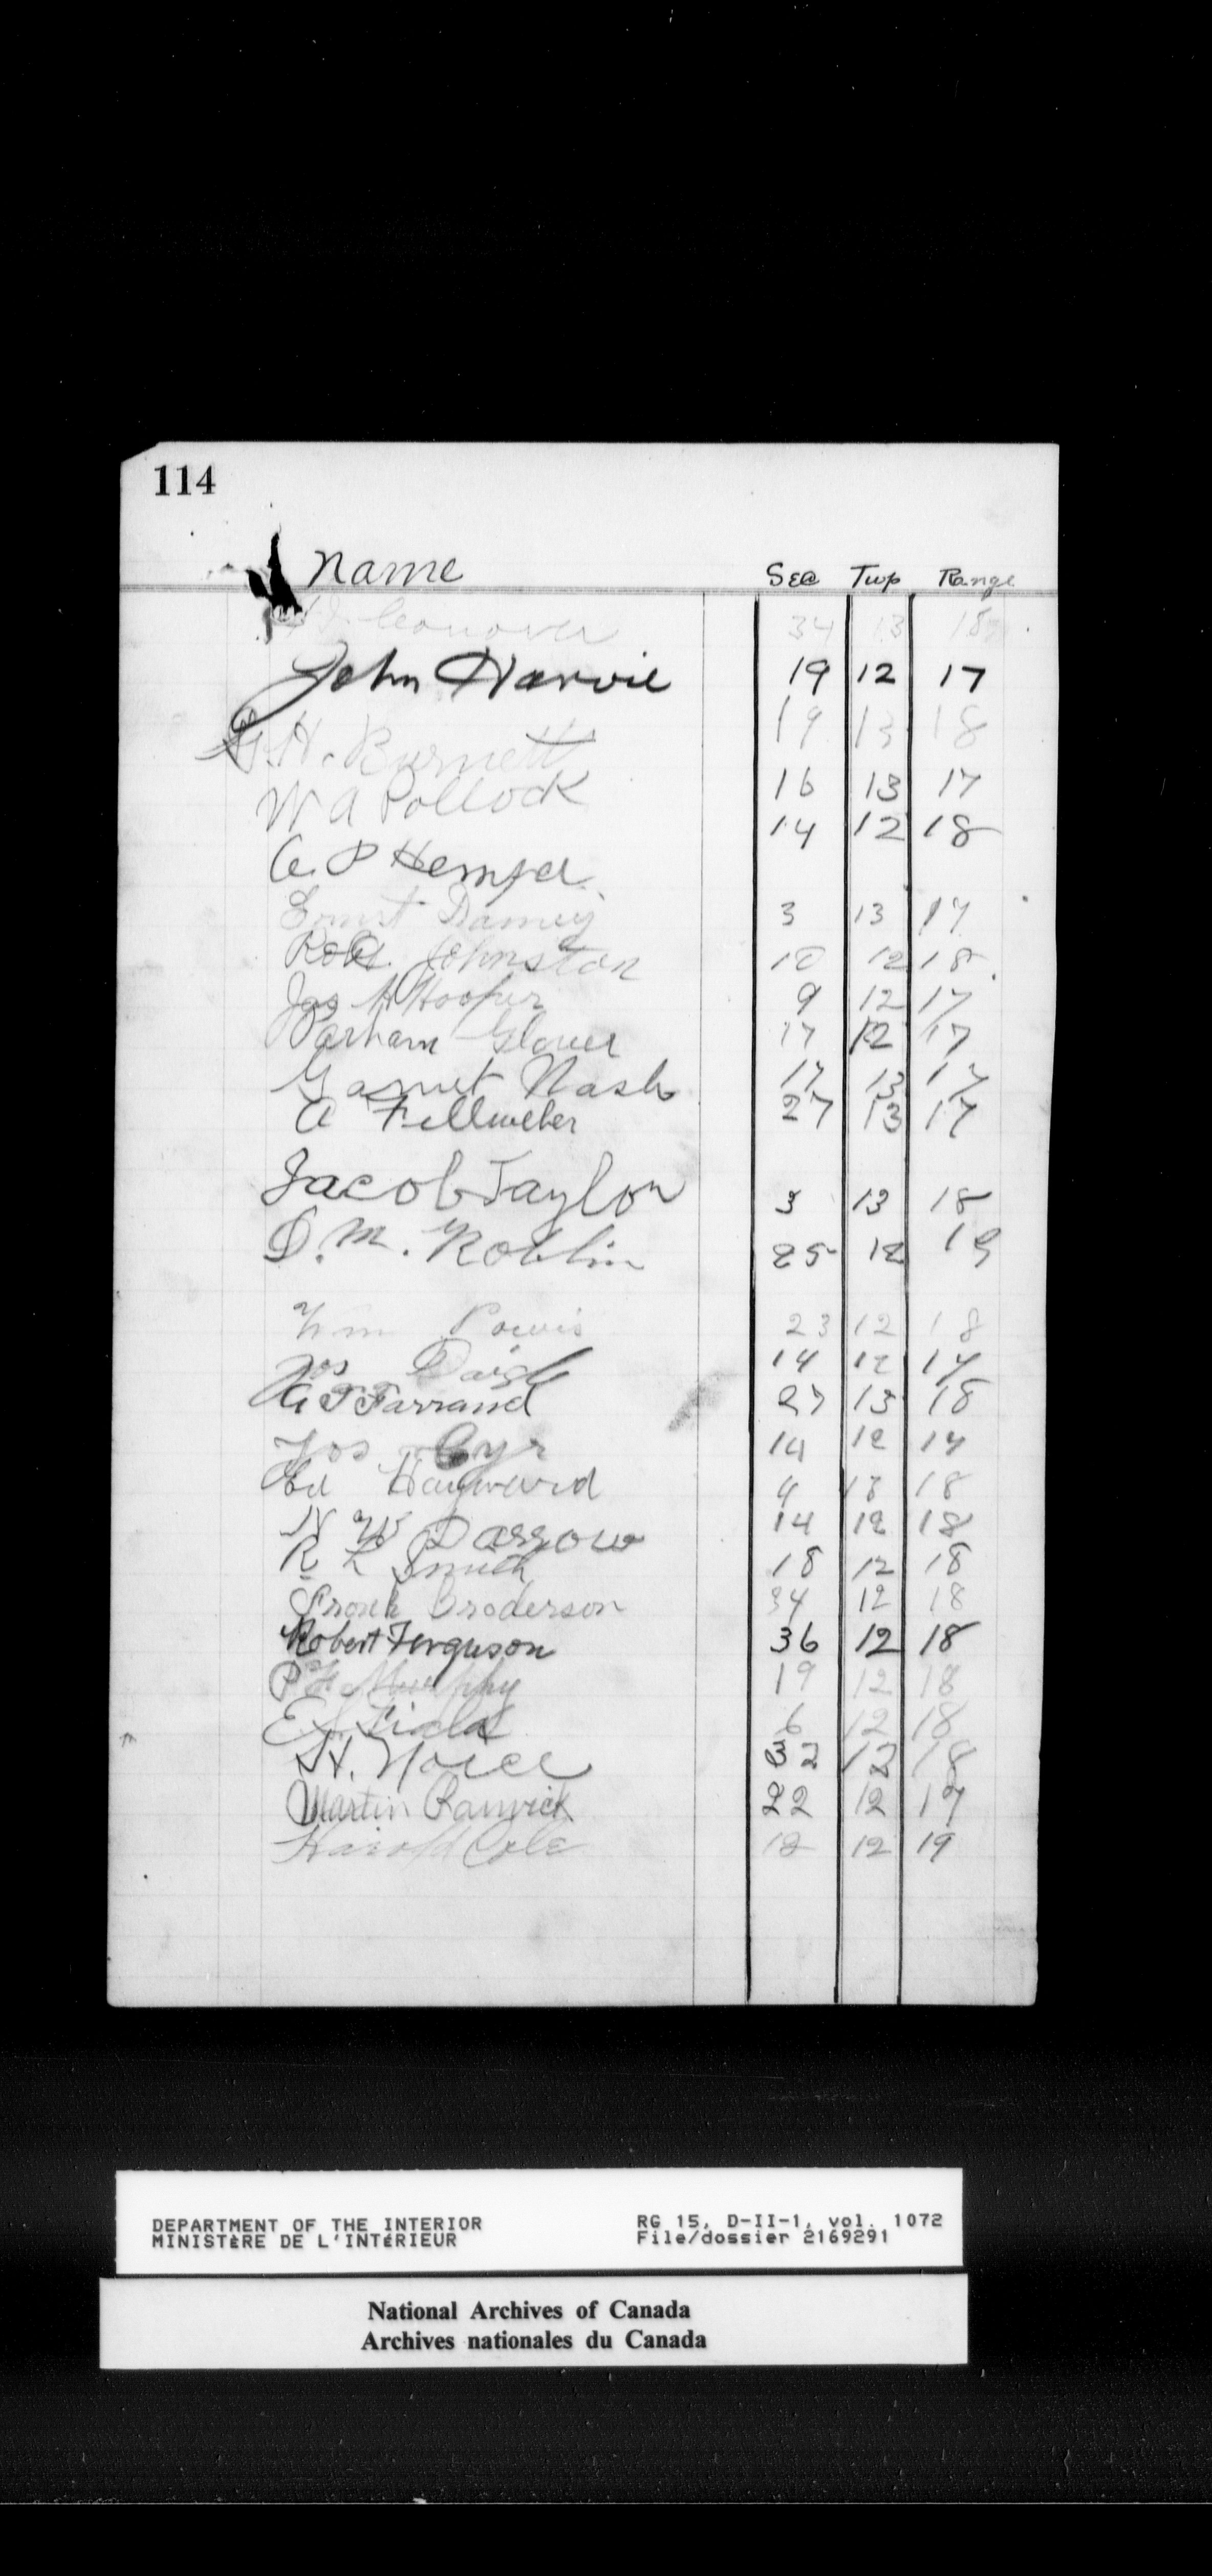 114
Name Sec Twp Range
Conover 34 13 18
John Harvie 19 12 17
G. H. Burnett 19 13 18
W A Pollock 16 13 17
14 12 18
A. P Hempel
Ernst 3 13 17
Robt. Johnston 10 12 18
Jas H Hooper 9 12 17
Parham Glover 17 12 17
Garnet Nash 17 13 17
A Fellweber 27 13 17
Jacob Taylor 3 13 18
D. M. Roblin 25 12 19
Wm Powis 23 12 18
Jos Daigle 14 12 17
A T Farrand 27 13 18
Jos Cyr 14 12 17
Ed Hayward 4 18
N W Darrow 14 12 18
R L Smith 18 12 18
Frank Broderson 34 12 18
Robert Ferguson 36 12 18
P H Murphy 19 12 18
E. S. Field 6 12 18
H. 32 12 18
Martin Ranwick 22 12 17
Harold Cole 12 12 19
DEPARTMENT OF THE INTERIOR RG 15, D-II-1, vol. 1072
MINISTÈRE DE L'INTÉRIEUR File/dossier 2169291
National Archives of Canada
Archives nationales du Canada